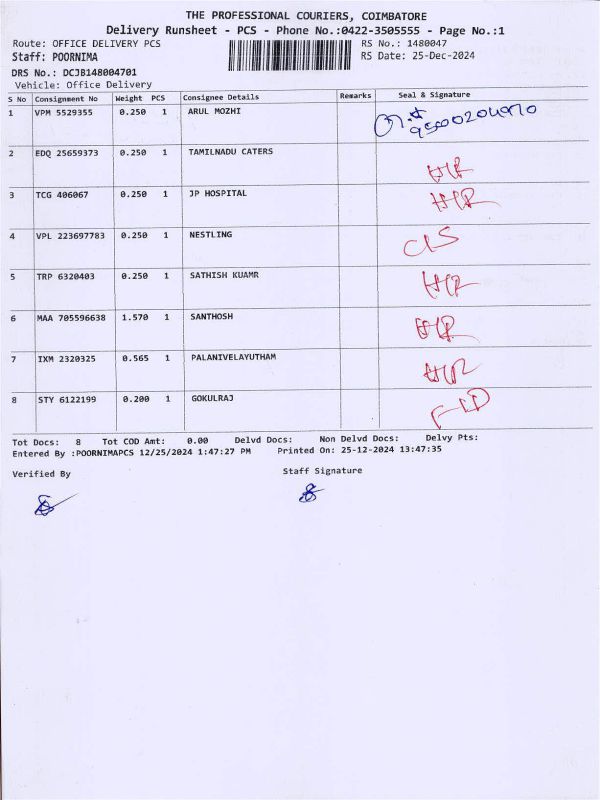 THE PROFESSIONAL COURIERS, COIMBATORE
Delivery Runsheet - PCS - Phone No.:0422-3505555 - Page No.:1
Route: OFFICE DELIVERY PCS RS No.: 1480047
Staff: POORNIMA RS Date: 25-Dec-2024
DRS No.: DCJB148004701
Vehicle: Office Delivery
S No Consignment No Weight PCS Consignee Details Remarks Seal & Signature
1 VPM 5529355 0.250 1 ARUL MOZHI
2 EDQ 25659373 0.250 1 TAMILNADU CATERS
3 TCG 406067 0.250 1 JP HOSPITAL
4 VPL 223697783 0.250 1 NESTLING
5 TRP 6320403 0.250 1 SATHISH KUAMR
6 MAA 705596638 1.570 1 SANTHOSH
7 IXM 2320325 0.565 1 PALANIVELAYUTHAM
8 STY 6122199 0.200 1 GOKULRAJ
Tot Docs: 8 Tot COD Amt: 0.00 Delvd Docs: Non Delvd Docs: Delvy Pts:
Entered By :POORNIMAPCS 12/25/2024 1:47:27 PM Printed On: 25-12-2024 13:47:35
Verified By Staff Signature